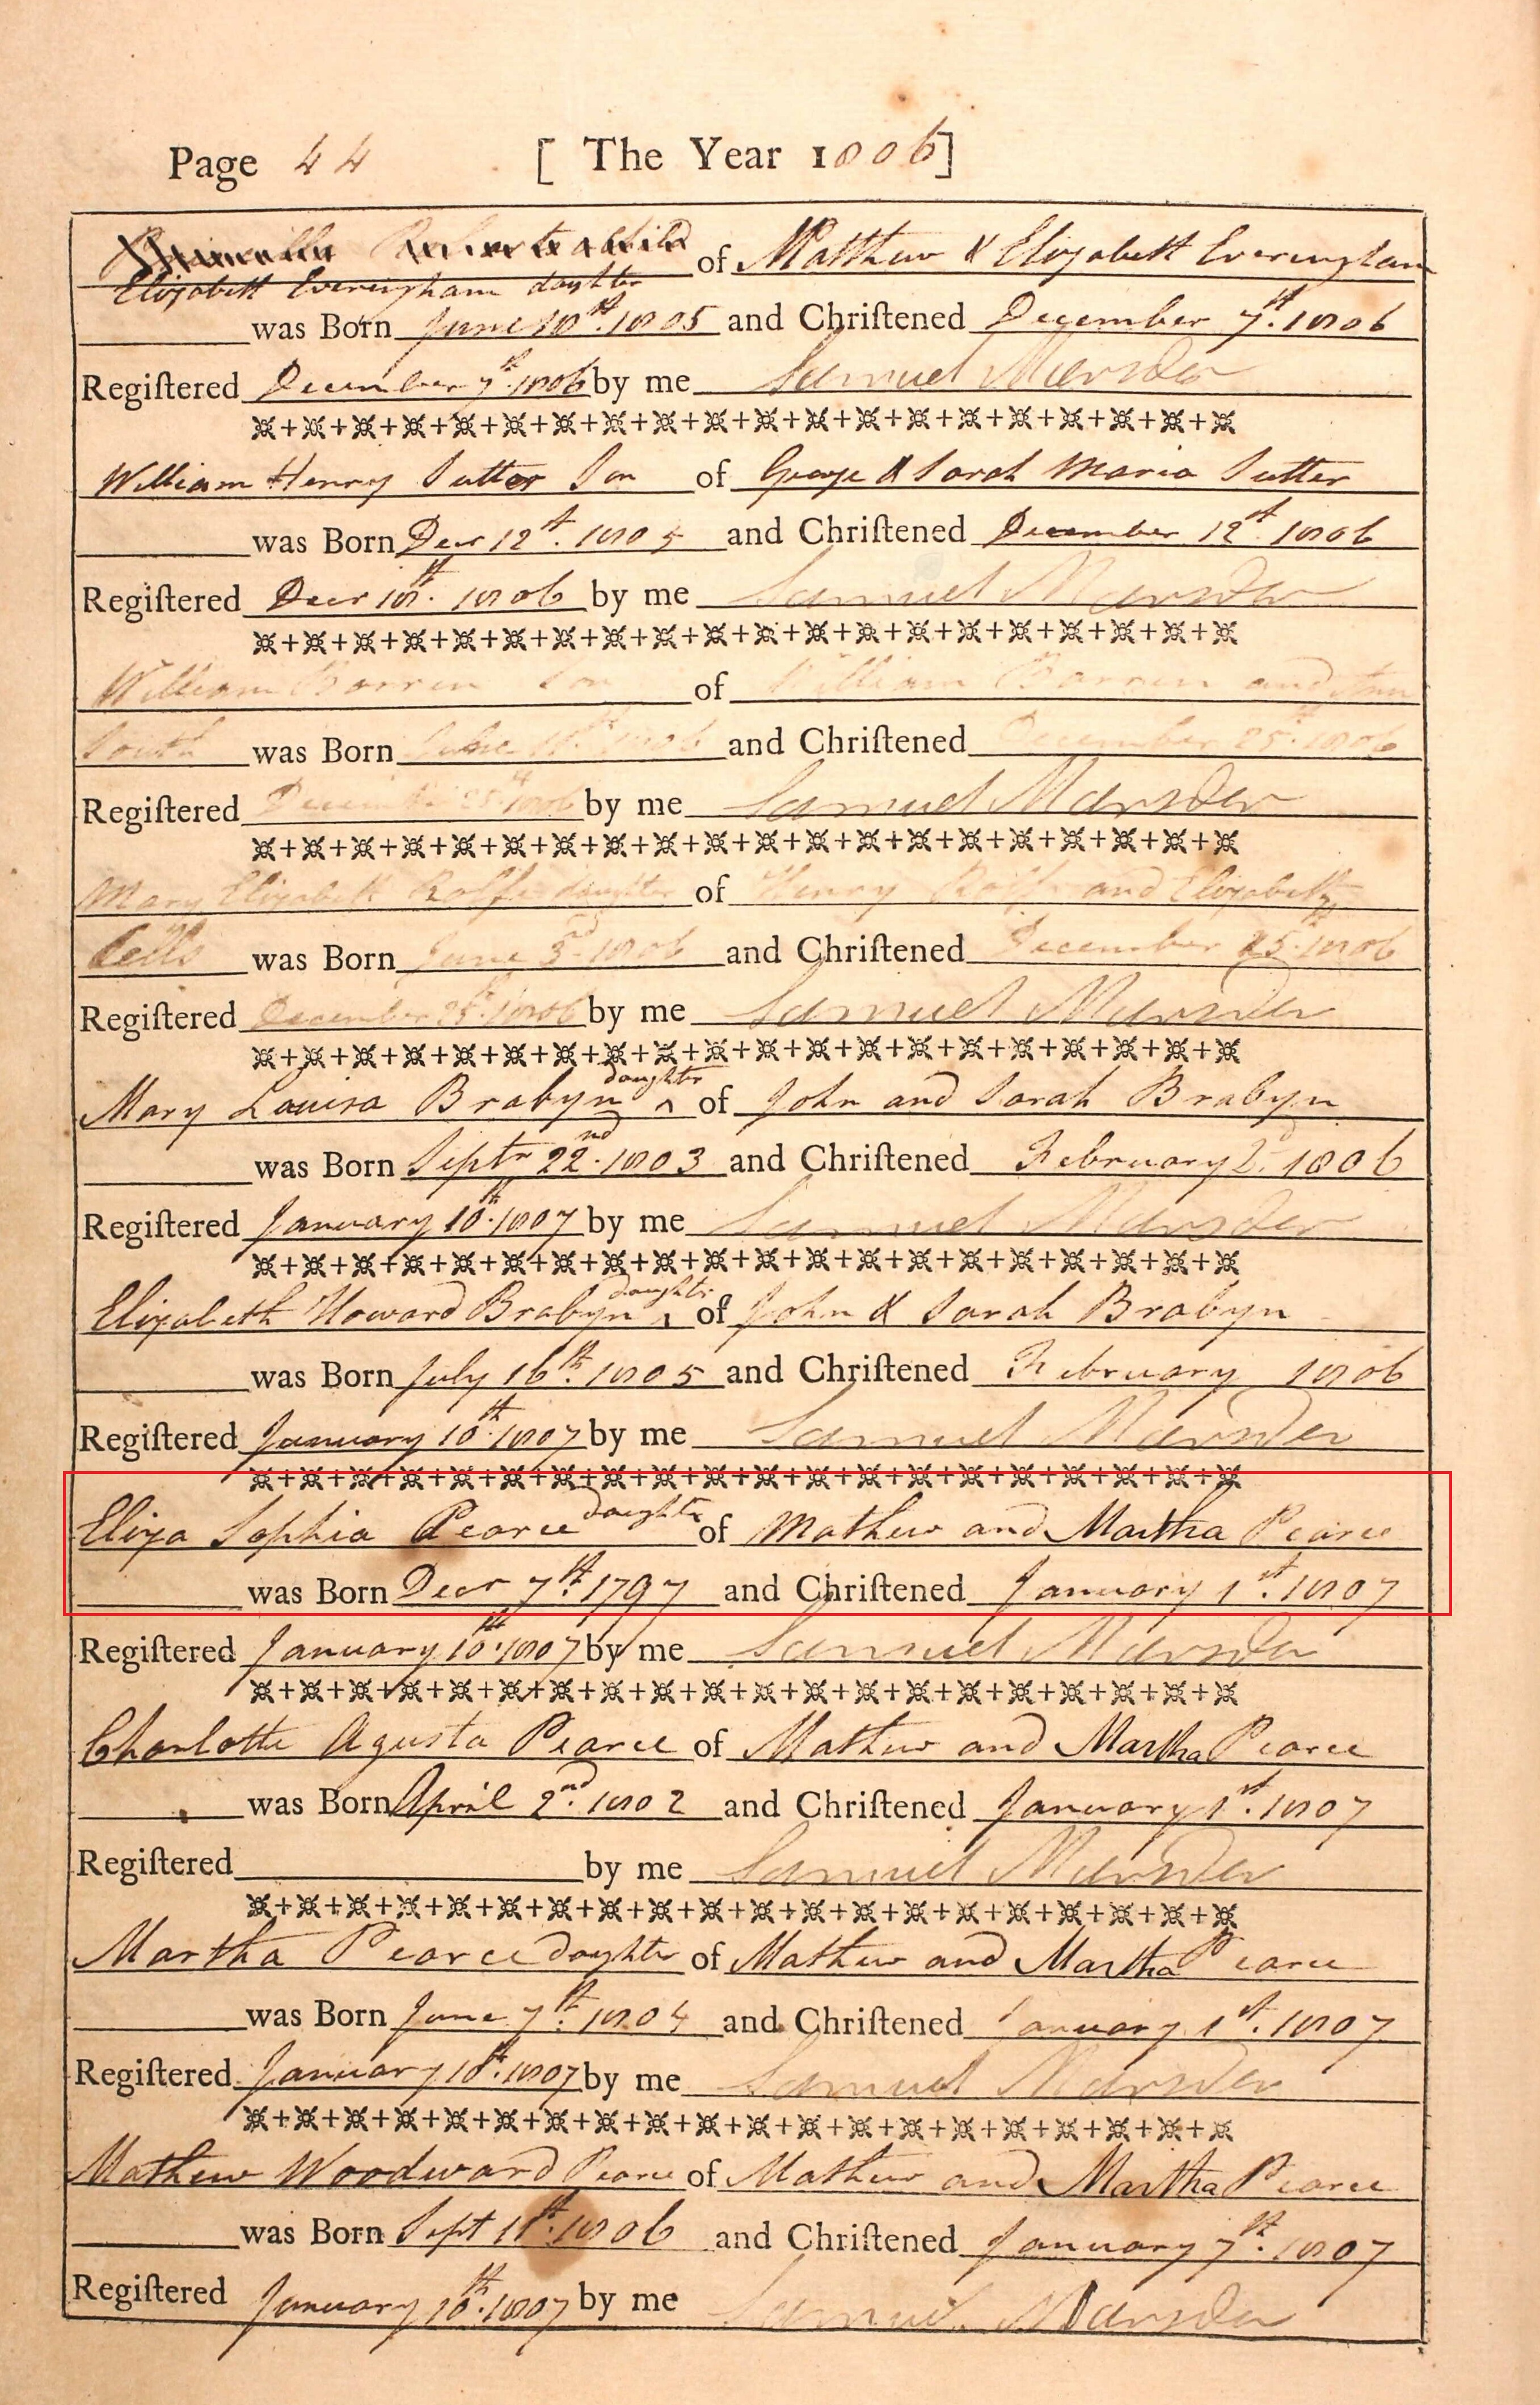 Page 44 [ The Year 1806]
of Matthew & Elizabeth Everingham
Elizabeth Everingham daughter
was Born June 10th. 1805 and Chriſtened December 7th. 1806
Regiſtered December 7th. 1806 by me Samuel Marsden
William Henry Sutter Son of George & Sarah Maria Sutter
was Born Decr 12th. 1805 and Chriſtened December 12th 1806
Regiſtered Decr 18th. 1806 by me Samuel Marsden
William Barren Son of William Barren and Ann
South was Born June 1806 and Chriſtened December 25th. 1806
Regiſtered December 25th. 1806 by me Samuel Marsden
Mary Elizabeth Rolfe daughter of Henry Rolfe and Elizabeth
Cells was Born June 3rd. 1806 and Chriſtened December 25th. 1806
Regiſtered December 25th. 1806 by me Samuel Marsden
Mary Louisa Brabyn daughter of John and Sarah Brabyn
was Born Septr 22nd. 1803 and Chriſtened February 2d. 1806
Regiſtered January 10th. 1807 by me Samuel Marsden
Elizabeth Howard Brabyn daughter of John & Sarah Brabyn
was Born July 16th. 1805 and Chriſtened February 1806
Regiſtered January 10th. 1807 by me Samuel Marsden
Eliza Sophia Pearce daughter of Mathew and Martha Pearce
was Born Decr 7th. 1797 and Chriſtened January 1st. 1807
Regiſtered January 10th. 1807 by me Samuel Marsden
Charlotte Agusta Pearce of Mathew and Martha Pearce
was Born April 2nd. 1802 and Chriſtened January 1st. 1807
Regiſtered by me Samuel Marsden
Martha Pearce daughter of Mathew and Martha Pearce
was Born June 7th. 1804 and Chriſtened January 1st. 1807
Regiſtered January 10th. 1807 by me Samuel Marsden
Mathew Woodward Pearce of Mathew and Martha Pearce
was Born Sept 11th. 1806 and Chriſtened January 7th. 1807
Regiſtered January 10th. 1807 by me Samuel Marsden